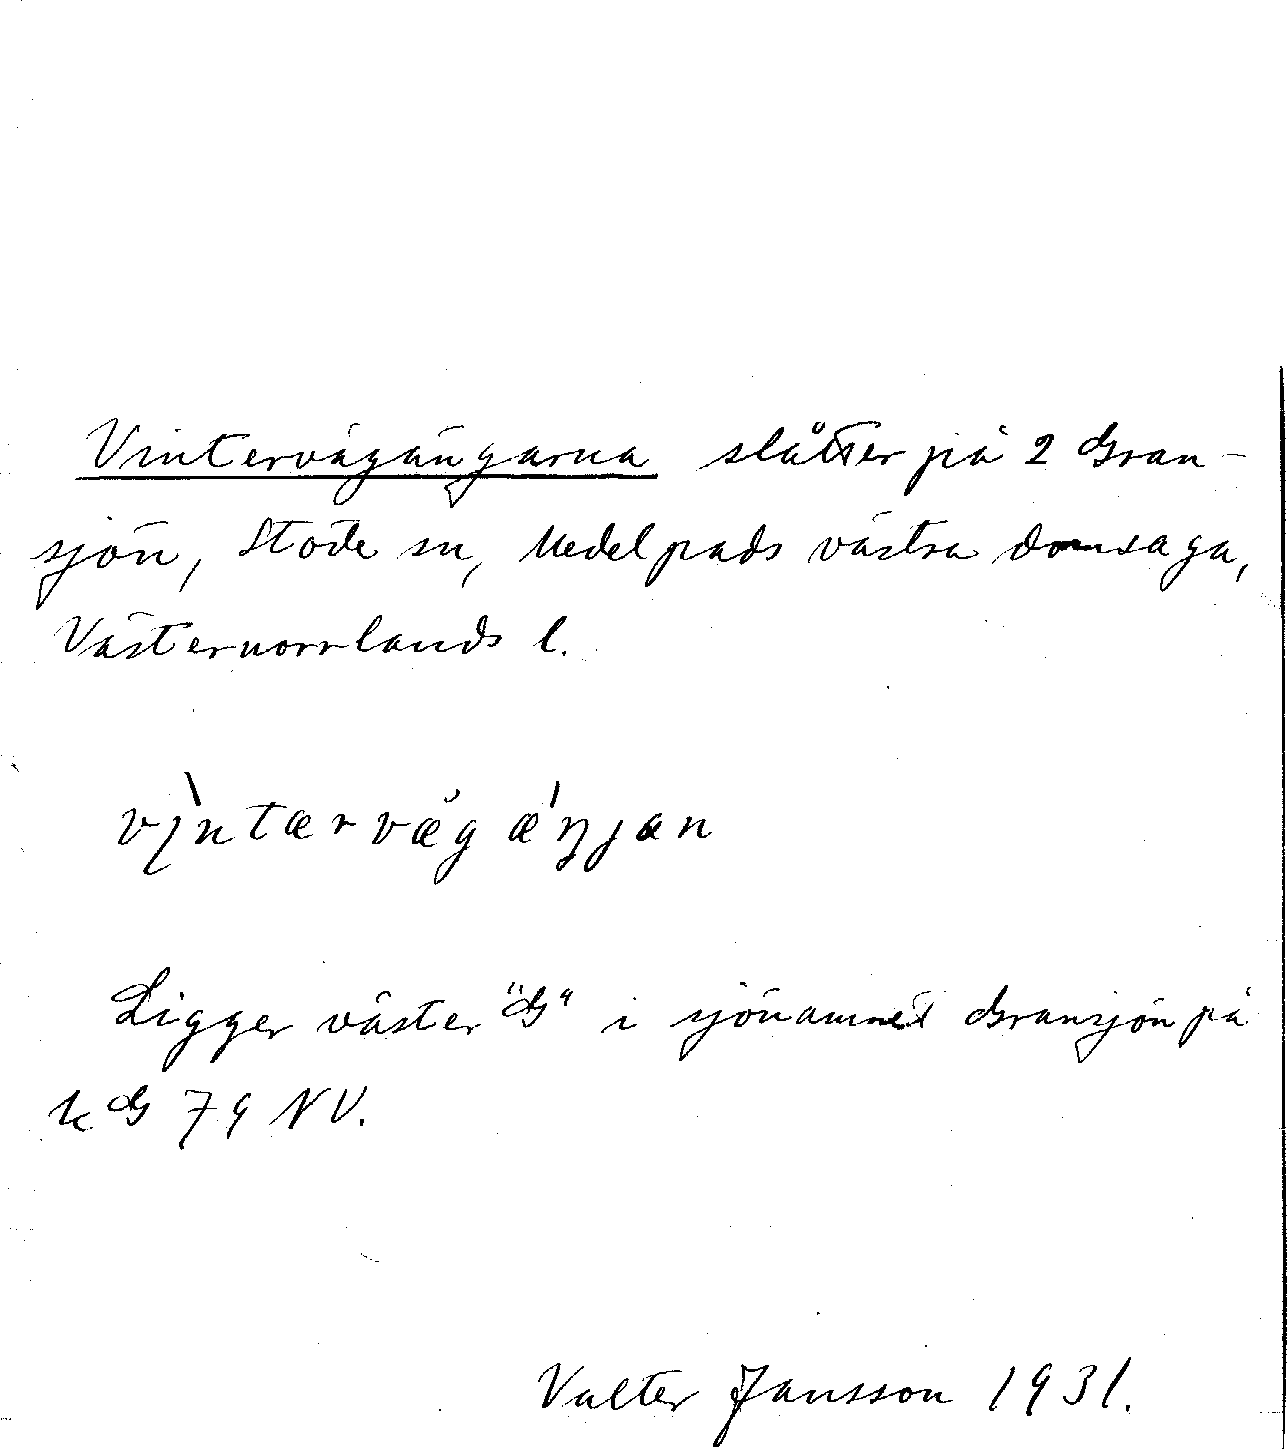 Vintervägängarna slåtter på 2 Gran-
sjön, Stöde sn, Medelpads västra domsaga,
Västernorrlands l.
vìntærvæ̆gǽŋjan
Ligger väster "G" i sjönamnet Gransjön på
k G 79 NV.
Valter Jansson 1931.